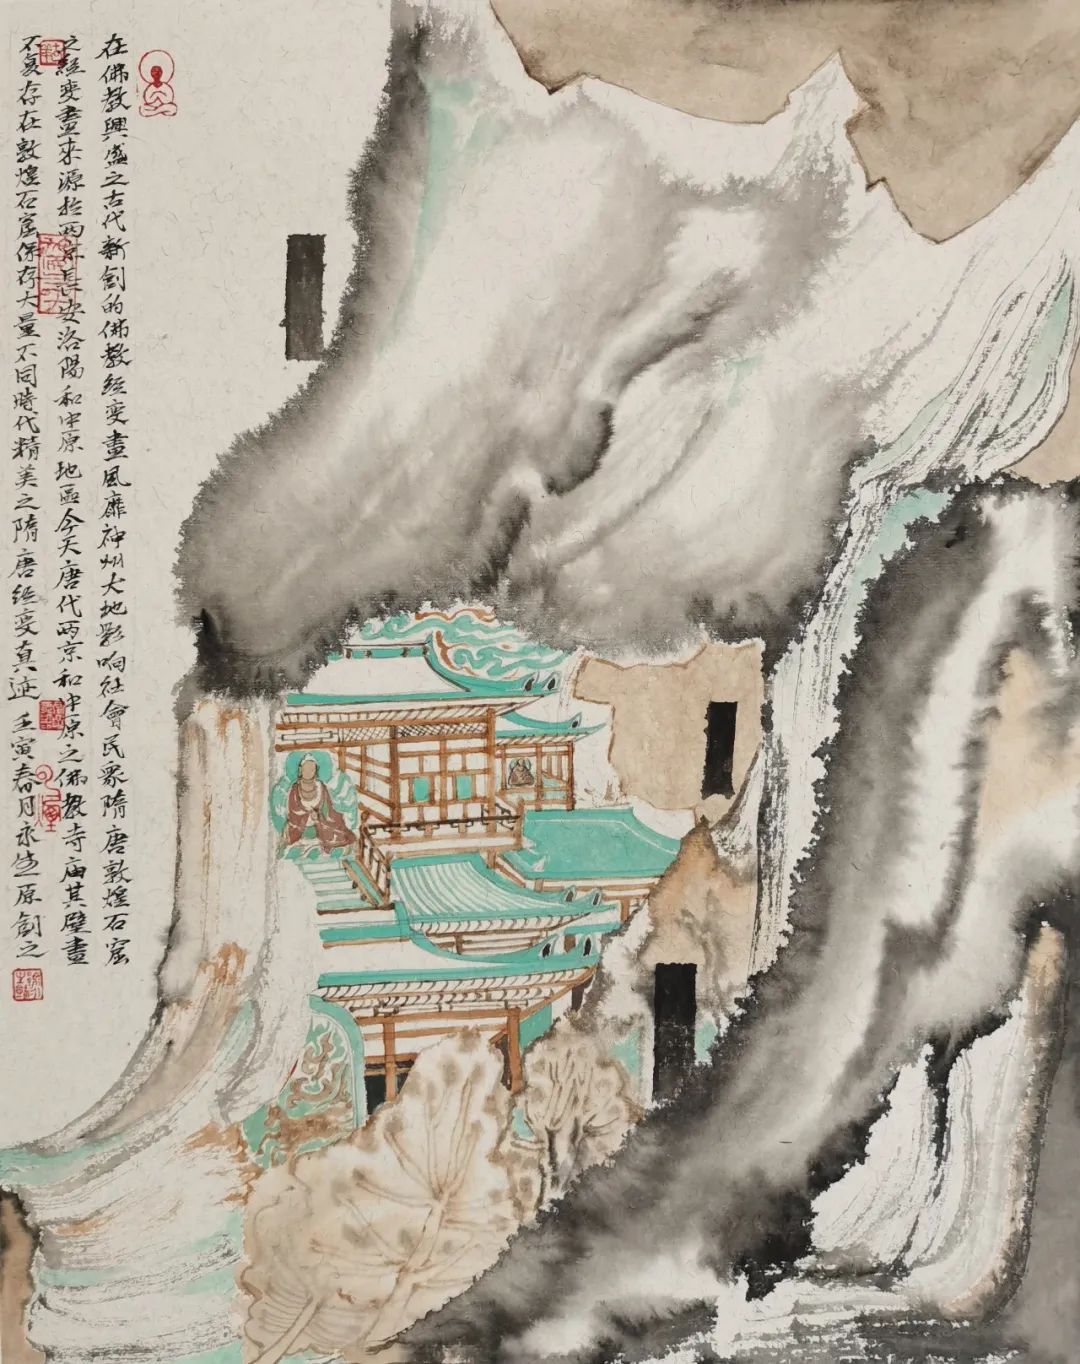 在佛教興盛之古代新創的佛教經变畫風靡神州大地影响社會民衆隋唐敦煌石窟
之經变畫來源於两京長安洛陽和中原地區今天唐代两京和中原之佛教寺庙其壁畫
不复存在敦煌石窟保存大量不同時代精美之隋唐經变真迹壬寅春月永生原創之